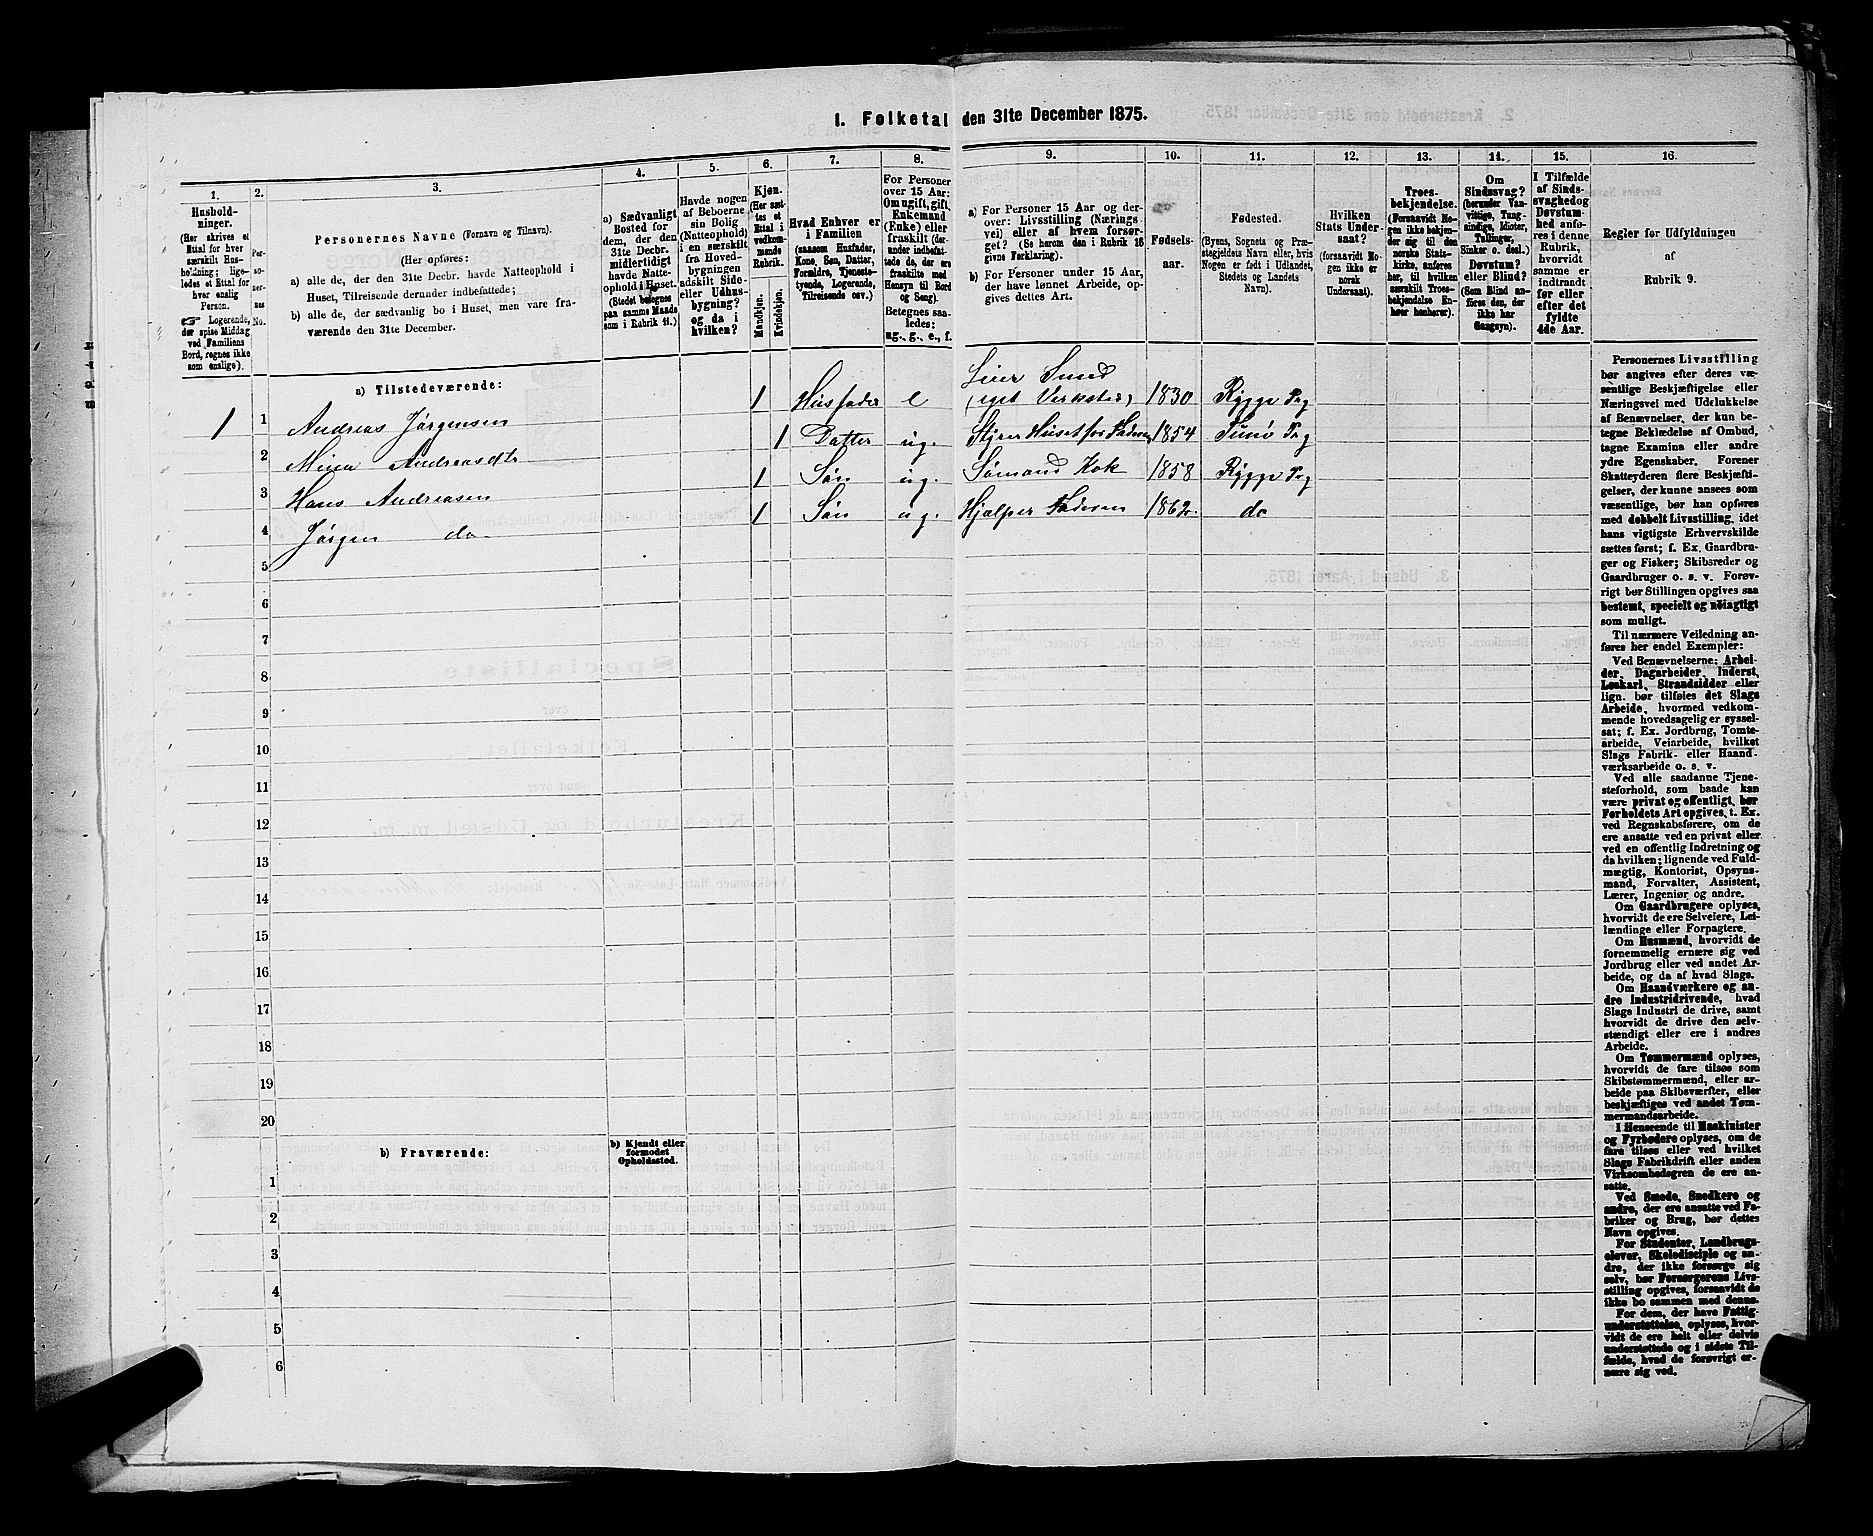 I. Folketal den 31te December 1875.
1.
Hushold-
ninger.
(Her skrives et
Ettal for hver
særskilt Hus-
holdning; lige-
ledes et Ettal for
hver enslig
Person.
Logerende,
der spise Middag
ved Familiens
Bord, regnes ikke
som enslige).
2.
Per-
so-
ner-
nes
No.
3.
Personernes Navne (Fornavn og Tilnavn).
(Her opføres:
a) alle de, der den 31te Decbr. havde Natteophold i
Huset, Tilreisende derunder indbefattede;
b) alle de, der sædvanlig bo i Huset, men vare fra-
værende den 31te December.
4.
a) Sædvanligt
Bosted for
dem, der den
31te Decbr.
midlertidigt
havde Natte-
ophold i Huset.
(Stedet betegnes
paa samme Maade
som i Rubrik 11.)
5.
Havde nogen
af Beboerne
sin Bolig
(Natteophold)
i en særskilt
fra Hoved-
bygningen
adskilt Side-
eller Udhus-
bygning?
og da i
hvilken?
6.
Kjøn.
(Her sæt-
tes et
Ettal i
vedkom-
mende
Rubrik.
Mandkjøn.
Kvindekjøn.
7.
Hvad Enhver er
i Familien
(saasom Husfader,
Kone, Søn, Datter,
Forældre, Tjeneste-
tyende, Logerende,
Tilreisende osv.)
8.
For Personer
over 15 Aar:
Om ugift, gift,
Enkemand
(Enke) eller
fraskilt (der-
under indbefat-
tede de, der ere
fraskilte med
Hensyn til Bord
og Seng).
Betegnes saa-
ledes:
ug., g., e., f.
9.
a) For Personer 15 Aar og der-
over: Livsstilling (Nærings-
vei) eller af hvem forsør-
get? (Se herom den i Rubrik 16
givne Forklaring).
b) For Personer under 15 Aar,
de have lønnet Arbeide, op-
gives dettes Art.
10.
Fødsels-
aar.
11.
Fødested.
(Byens, Sognets og Præ-
stegjeldets Navn eller, hvis
Nogen er født i Udlandet,
Stedets og Landets
Navn).
12.
Hvilken
Stats Under-
saat?
(forsaavidt No-
gen ikke er
norsk
Undersaat).
13.
Troes-
bekjendelse.
(Forsaavidt No-
gen ikke bekjen-
der sig til den
norske Stats-
kirke, anføres
her, til hvilken
særskilt Troes-
bekjendelse En-
hver henhører).
14.
Om
Sindssvag?
(herunder Van-
vittige, Tung-
sindige, Idioter,
Tullinger,
Sinker o. desl.)
Døvstum?
eller Blind?
(Som Blind an-
føres den, der
ikke har
Gangsyn).
15.
I Tilfælde
af Sinds-
svaghed og
Døvstum-
hed anfø-
res i denne
Rubrik,
hvorvidt
samme er
indtraadt
før eller
efter det
fyldte
4de Aar.
16.
Regler for Udfyldningen
af
Rubrik 9.
a) Tilstedeværende:
1 1 Andreas Jørgensen 1 Husfader e Smed
(eget Verksted) 1830 Rygge Prg
2 Mina Andreasdtr 1 Datter ug. Styrer Huset for Faderen 1854 Prg
3 Hans Andreasen 1 Søn ug. Sømand Kok 1858 Rygge Prg
4 Jørgen do 1 Søn ug. Hjælper Faderen 1862 do
5
6
7
8
9
10
11
12
13
14
15
16
17
18
19
20
b) Fraværende:
b) Kjendt eller
formodet
Opholdssted.
1
2
3
4
5
6
Personernes Livsstilling
bør angives efter deres væ-
sentlige Beskjæftigelse eller
Næringsvei med Udelukkelse
af Benævnelser, der kun be-
tegne Beklædelse af Ombud,
tagne Examina eller andre
ydre Egenskaber. Forener
Skatteyderen flere Beskjæfti-
gelser, der kunne ansees som
væsentlige, bør han opføres
med dobbelt Livsstilling, idet
hans vigtigste Erhvervskilde
sættes først; f. Ex. Gaardbru-
ger og Fisker; Skibsreder og
Gaardbruger o. s. v. Forøv-
rigt bør Stillingen opgives saa
bestemt, specielt og nøiagtigt
som muligt.
Til nærmere Veiledning an-
føres her endel Exempler:
Ved Benævnelserne: Arbei-
der, Dagarbeider, Inderst,
Løskarl, Strandsidder eller
lign. bør tilføies det Slags
Arbeide, hvormed vedkom-
mende hovedsagelig er syssel-
sat; f. Ex. Jordbrug, Tomte-
arbeide, Veiarbeide, hvilket
Slags Fabrik- eller Haand-
værksarbeide o. s. v.
Ved alle saadanne Tjene-
steforhold, som baade kan
være privat og offentligt, bør
Forholdets Art opgives, t. Ex.
ved Regnskabsførere, om de
ere ansatte ved en privat eller
ved en offentlig Indretning og
da hvilken; lignende ved Fuld-
mægtig, Kontorist, Opsyns-
mand, Forvalter, Assistent,
Lærer, Ingeniør og andre.
Om Gaardbrugere oplyses,
hvorvidt de ere Selveiere, Lei-
lændinge eller Forpagtere.
Om Husmænd, hvorvidt de
fornemmelig ernære sig ved
Jordbrug eller ved andet Ar-
beide, og da af hvad Slags.
Om Haandværkere og an-
dre Industridrivende, hvad
Slags Industri de drive, samt
hvorvidt de drive den selv-
stændigt eller ere i andres
Arbeide.
Om Tømmermænd oplyses,
hvorvidt de fare tilsøs som
Skibstømmermænd, eller ar-
beide paa Skibsværfter, eller
beskjæftiges ved andet Tøm-
mermandsarbeide.
I Henseende til Maskinister
og Fyrbødere oplyses, om de
fare tilsøs eller ved hvilket
Slags Fabrikdrift eller anden
Virksomhed de ere an-
satte.
Ved Smede, Snedkere og
andre, der ere ansatte ved Fa-
briker og Brug, bør dettes
Navn opgives.
For Studenter, Landbrugs-
elever, Skoledisciple og an-
dre, der ikke forsørge sig
selv, bør Forsørgerens Livs-
stilling opgives, forsaavidt de
ikke bo sammen med denne.
For dem, der have Fattig-
understøttelse, oplyses, hvor-
vidt de ere helt eller delvis
understøttede og i sidste Til-
fælde, hvad de forøvrigt er-
nære sig ved.